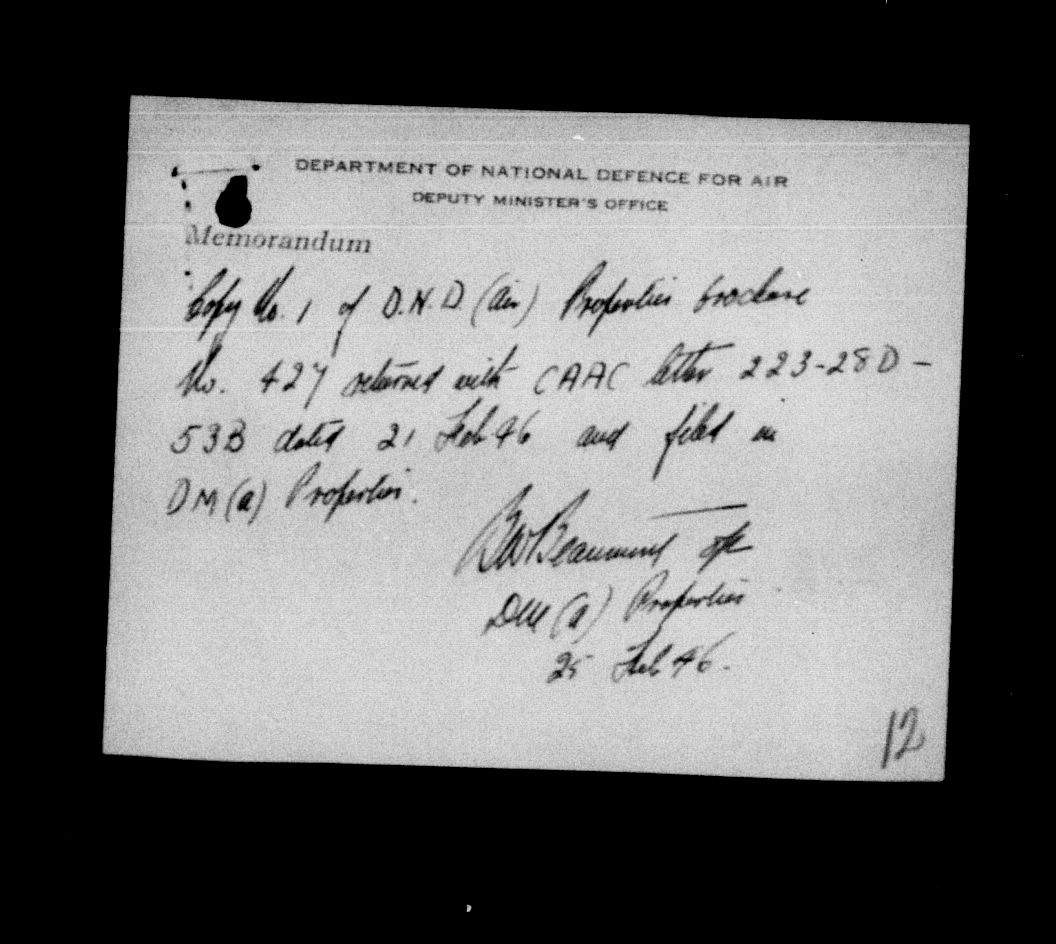 DEPARTMENT OF NATIONAL DEFENCE FOR AIR
DEPUTY MINISTER'S OFFICE
Memorandum
Copy No. 1 of D.N.D (Air) Properties brochure
No. 427 returned with CAAC letter 223-28D-
53B dated 21 Feb 46 and filed in
DM(a) Properties.
BW Beaumont
DM (a) Properties
25 Feb 46.
12